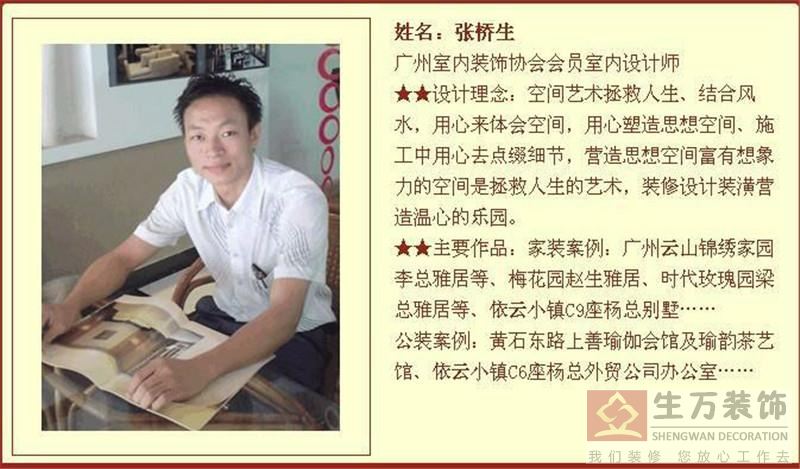 姓名：张桥生
广州室内装饰协会会员室内设计师
★★设计理念：空间艺术拯救人生、结合风
水，用心来体会空间，用心塑造思想空间、施
工中用心去点缀细节，营造思想空间富有想象
力的空间是拯救人生的艺术，装修设计装潢营
造温心的乐园。
★★主要作品：家装案例：广州云山锦绣家园
李总雅居等、梅花园赵生雅居、时代玫瑰园梁
总雅居等、依云小镇C9座杨总别墅……
公装案例：黄石东路上善瑜伽会馆及瑜韵茶艺
馆、依云小镇C6座杨总外贸公司办公室……
生万装饰
SHENGWAN DECORATION
我们装修 您放心工作去